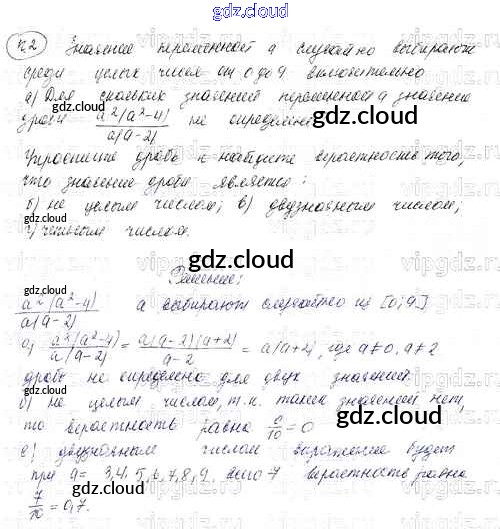 gdz.cloud
№2 Значение переменной a случайно выбирают
среди целых чисел от 0 до 9 включительно
а) Для скольких значений переменной a значение
gdz.cloud
дроби a²(a²-4)/a(a-2) не определено
gdz.cloud
Упростите дробь и найдите вероятность того,
что значение дроби является:
gdz.cloud
б) не целым числом; в) двузначным числом;
г) четным числом.
gdz.cloud
Решение:
a²(a²-4)/a(a-2) a выбирают случайно из [0; 9]
gdz.cloud
а) a²(a²-4)/a(a-2) = a(a-2)(a+2)/a-2 = a(a+2), где a≠0, a≠2
дробь не определена для двух значений.
gdz.cloud
б) не целым числом, т.к. таких значений нет,
то вероятность равна 0/10 = 0
gdz.cloud
в) двузначным числом выражение будет
gdz.cloud
при a = 3,4,5,6,7,8,9, всего 7 вероятность равна
7/10 = 0,7.
gdz.cloud